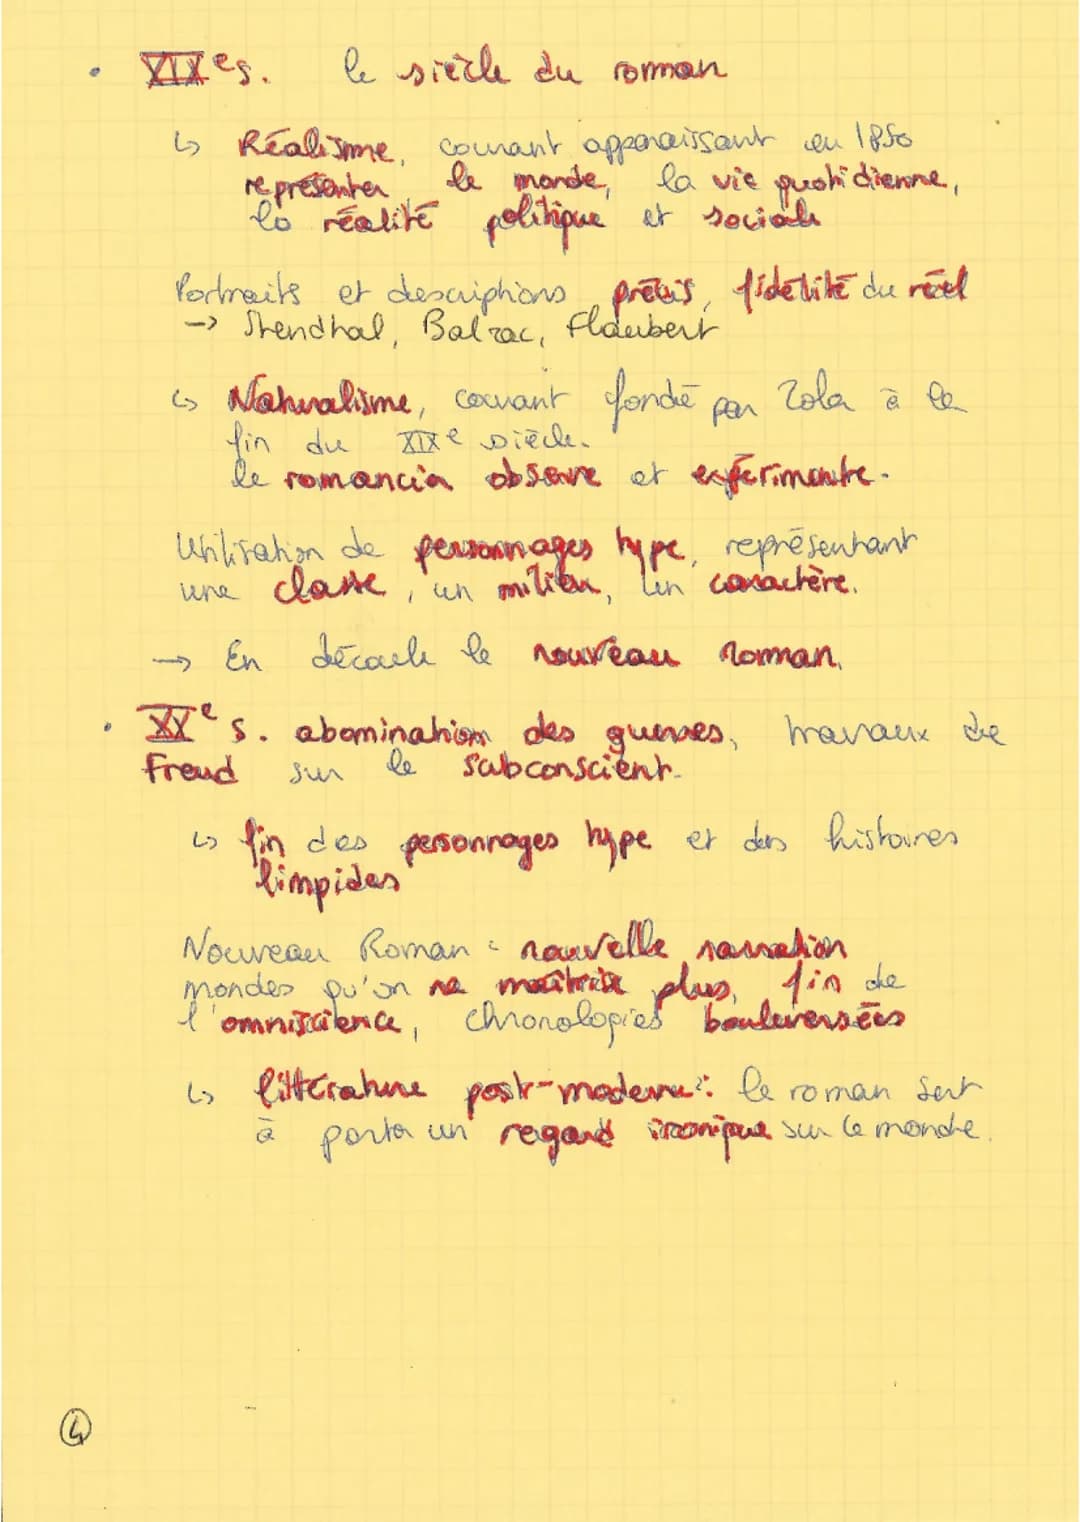 • XIXe s. le siècle du roman
↳ Réalisme, courant apparaissant en 1850
représenter le monde, la vie quotidienne,
la réalité politique et sociale
Portraits et descriptions précis, fidélité du réel
-> Stendhal, Balzac, Flaubert
↳ Naturalisme, courant fondé par Zola à la
fin du XIXe siècle.
le romancier observe et expérimente.
Utilisation de personnages type, représentant
une classe, un milieu, un caractère.
-> En découle le nouveau roman.
• XXe s. abomination des guerres, travaux de
Freud sur le subconscient.
↳ fin des personnages type et des histoires
limpides
Nouveau Roman : nouvelle narration
mondes qu'on ne maîtrise plus, fin de
l'omniscience, chronologies bouleversées
↳ littérature post-moderne : le roman sert
à porter un regard ironique sur le monde.
4